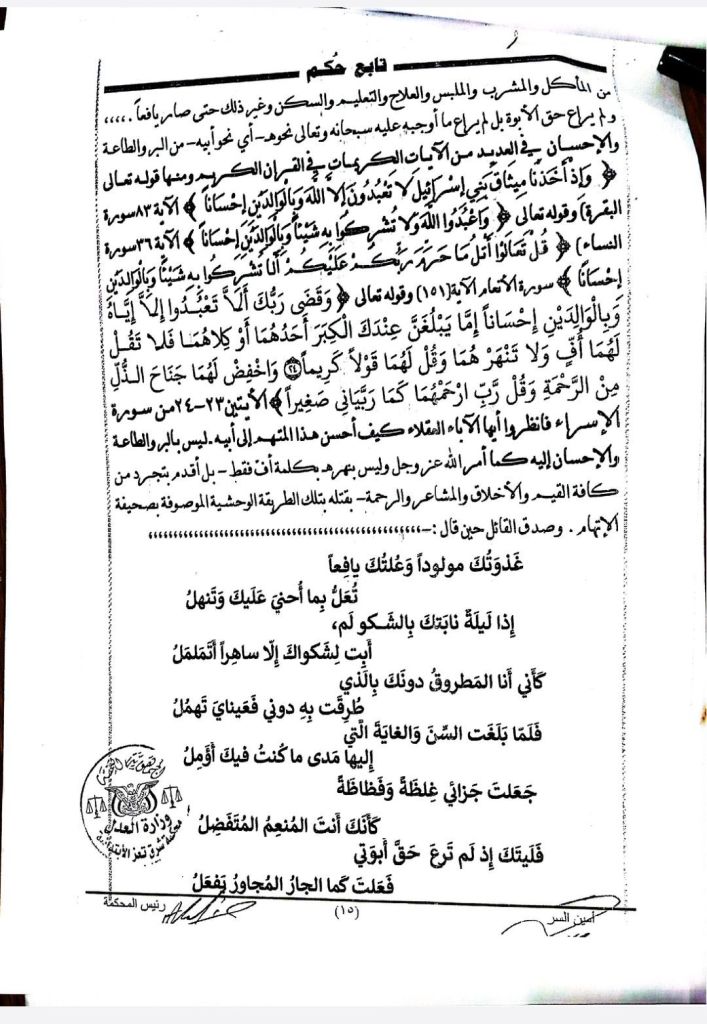 تابع حُكم
من المأكل والمشرب والملبس والعلاج والتعليم والسكن وغير ذلك حتى صار يافعاً . ,,,,
ولم يراع حق الأبوة بل لم يراع ما أوجبه عليه سبحانه وتعالى نحوه -أي نحو أبيه- من البر والطاعة
والإحسان في العديد من الآيات الكريمات في القران الكريم ومنها قوله تعالى
﴿ وَإِذْ أَخَذْنَا مِيثَاقَ بَنِي إِسْرَائِيلَ لَا تَعْبُدُونَ إِلَّا اللَّهَ وَبِالْوَالِدَيْنِ إِحْسَاناً ﴾ الآية ٨٣ سورة
البقرة) وقوله تعالى ﴿ وَاعْبُدُوا اللَّهَ وَلَا تُشْرِكُوا بِهِ شَيْئاً وَبِالْوَالِدَيْنِ إِحْسَاناً ﴾ الآية ٣٦ سورة
النساء) ﴿ قُلْ تَعَالَوْا أَتْلُ مَا حَرَّمَ رَبُّكُمْ عَلَيْكُمْ أَلَّا تُشْرِكُوا بِهِ شَيْئاً وَبِالْوَالِدَيْنِ
إِحْسَاناً ﴾ سورة الأنعام الآية (١٥١) وقوله تعالى ﴿ وَقَضَى رَبُّكَ أَلَّا تَعْبُدُوا إِلَّا إِيَّاهُ
وَبِالْوَالِدَيْنِ إِحْسَاناً إِمَّا يَبْلُغَنَّ عِنْدَكَ الْكِبَرَ أَحَدُهُمَا أَوْ كِلَاهُمَا فَلَا تَقُلْ
لَهُمَا أُفٍّ وَلَا تَنْهَرْهُمَا وَقُلْ لَهُمَا قَوْلاً كَرِيماً ۝ وَاخْفِضْ لَهُمَا جَنَاحَ الذُّلِّ
مِنَ الرَّحْمَةِ وَقُلْ رَبِّ ارْحَمْهُمَا كَمَا رَبَّيَانِي صَغِيراً ﴾ الأيتين ٢٣-٢٤ من سورة
الإسراء فانظروا أيها الآباء العقلاء كيف أحسن هذا المتهم إلى أبيه . ليس بالبر والطاعة
والإحسان إليه كما أمر الله عز وجل وليس بنهره بكلمة أف فقط - بل أقدم بتجرد من
كافة القيم والأخلاق والمشاعر والرحمة - بقتله بتلك الطريقة الوحشية الموصوفة بصحيفة
الإتهام . وصدق القائل حين قال :-
غَذَوتُكَ مولوداً وَعُلتُكَ يافِعاً
تُعَلُّ بِما أُحنيَ عَلَيكَ وَتَنهلُ
إِذا لَيلَةٌ نابَتكَ بِالشَكو لَم،
أَبِت لِشَكواكَ إِلّا ساهِراً أَتَملمَلُ
كَأَني أَنا المَطروقُ دونَكَ بِالَذي
طُرِقت بِهِ دوني فَعَينايَ تَهمُلُ
فَلَمّا بَلَغَت السِّنَ وَالغايَةَ الَّتي
إِليها مَدى ما كُنتُ فيكَ أُؤَمِلُ
جَعَلتَ جَزائي غِلظَةً وَفَظاظَةً
كَأَنَكَ أَنتَ المُنعِمُ المُتَفَضِلُ
فَلَيتَكَ إِذ لَم تَرعَ حَقَّ أُبوَتي
فَعَلتَ كَما الجارُ المُجاورُ يَفعَلُ
وزارة العدل
محكمة شرق تعز الابتدائية
أمين السر
(١٥)
رئيس المحكمة